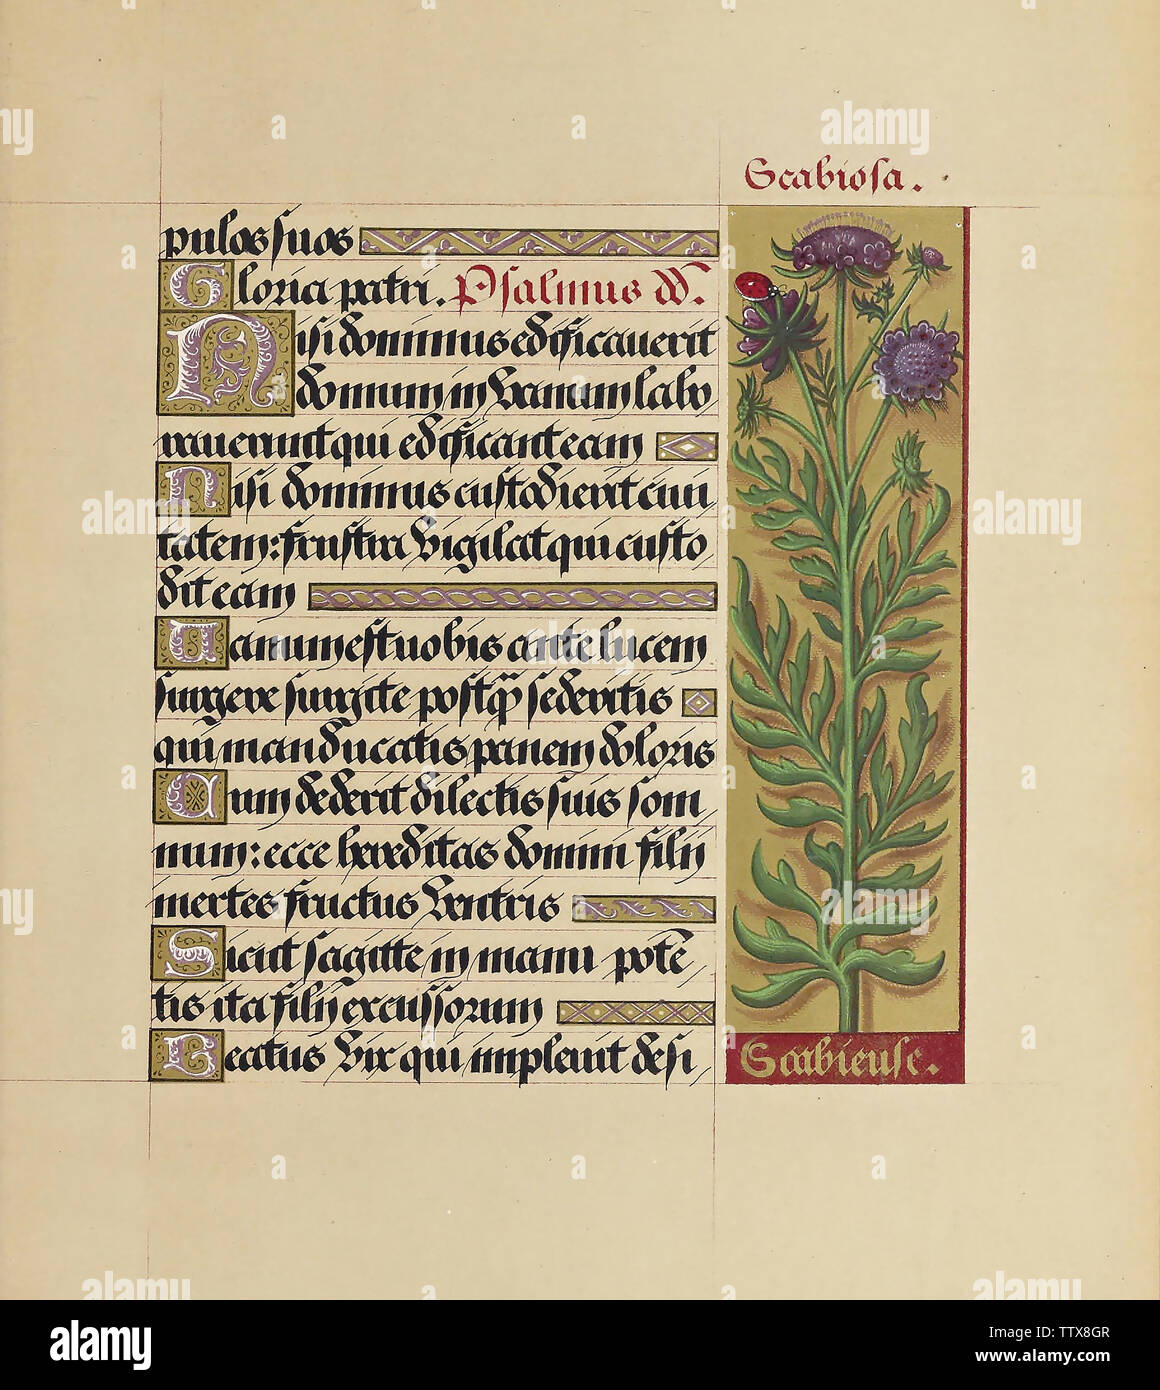 Scabiosa.
pulos suos
Gloria patri. Psalmus dd.
Nisi dominus edificauerit
domum in vanum labo
rauerunt qui edificant eam
Nisi dominus custodierit ciui
tatem: frustra vigilat qui custo
dit eam
Uanum est uobis ante lucem
surgere surgite postq̄ sederitis
qui manducatis panem doloris
Cum dederit dilectis suis som
num: ecce hereditas domini filij
mertes fructus ventris
Sicut sagitte in manu potē
tis ita filij excussorum
Beatus vir qui impleuit desi
Scabieuse.
alamy
Image ID: TTX8GR
www.alamy.com